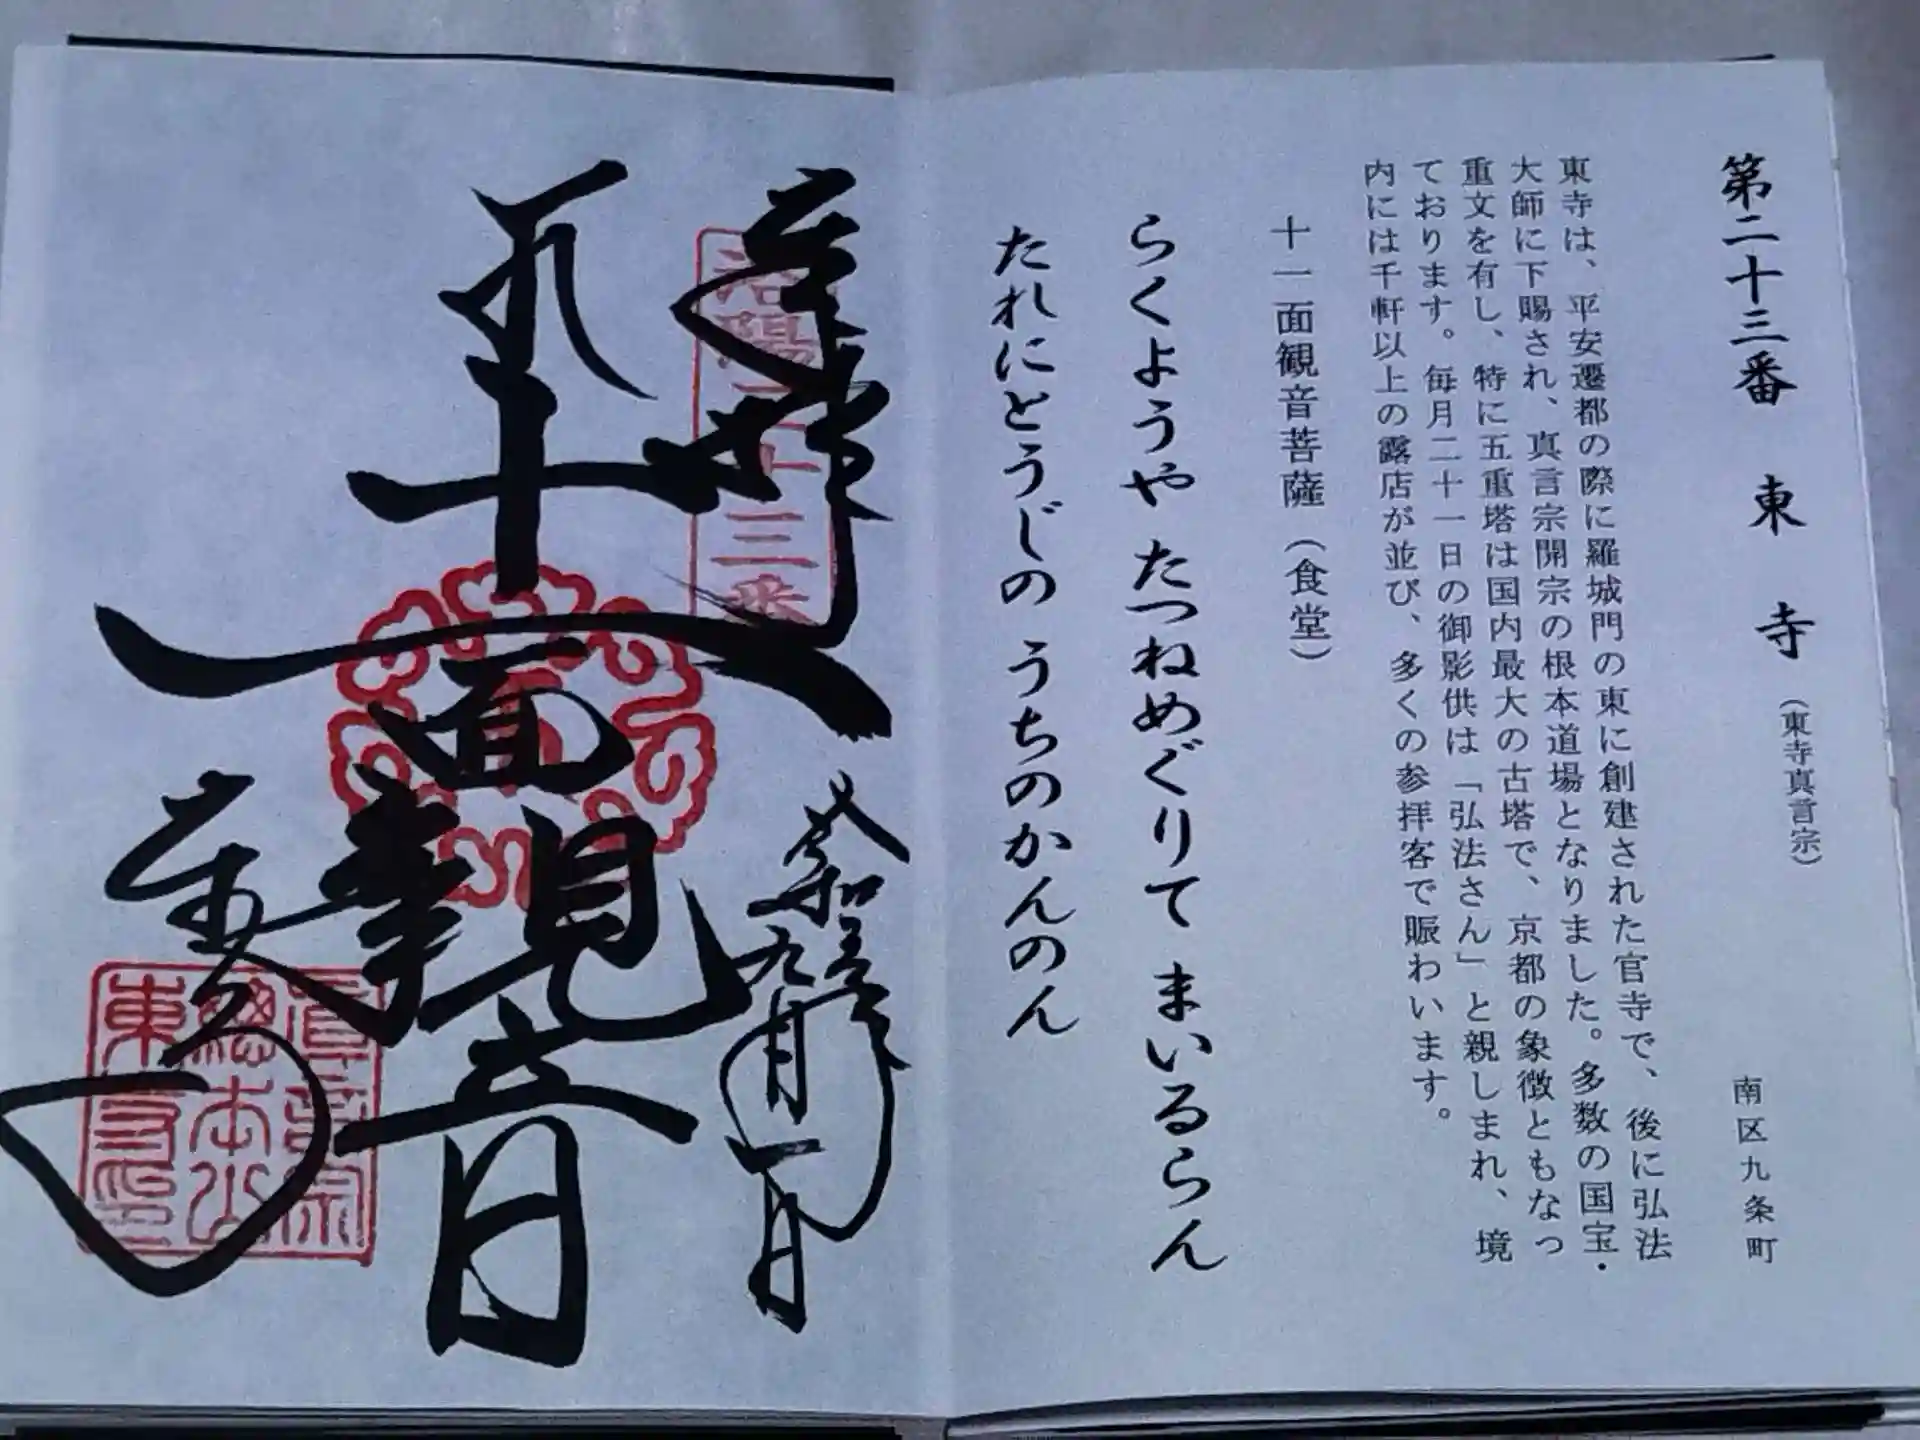 第二十三番 東寺（東寺真言宗） 南区九条町
東寺は、平安遷都の際に羅城門の東に創建された官寺で、後に弘法
大師に下賜され、真言宗開宗の根本道場となりました。多数の国宝・
重文を有し、特に五重塔は国内最大の古塔で、京都の象徴ともなっ
ております。毎月二十一日の御影供は「弘法さん」と親しまれ、境
内には千軒以上の露店が並び、多くの参拝客で賑わいます。
十一面観音菩薩（食堂）
らくようや たつねめぐりて まいるらん
たれにとうじの うちのかんのん
奉拝
洛陽二十三番
令和三年九月一日
十一面
観音
真言宗
総本山
東寺印